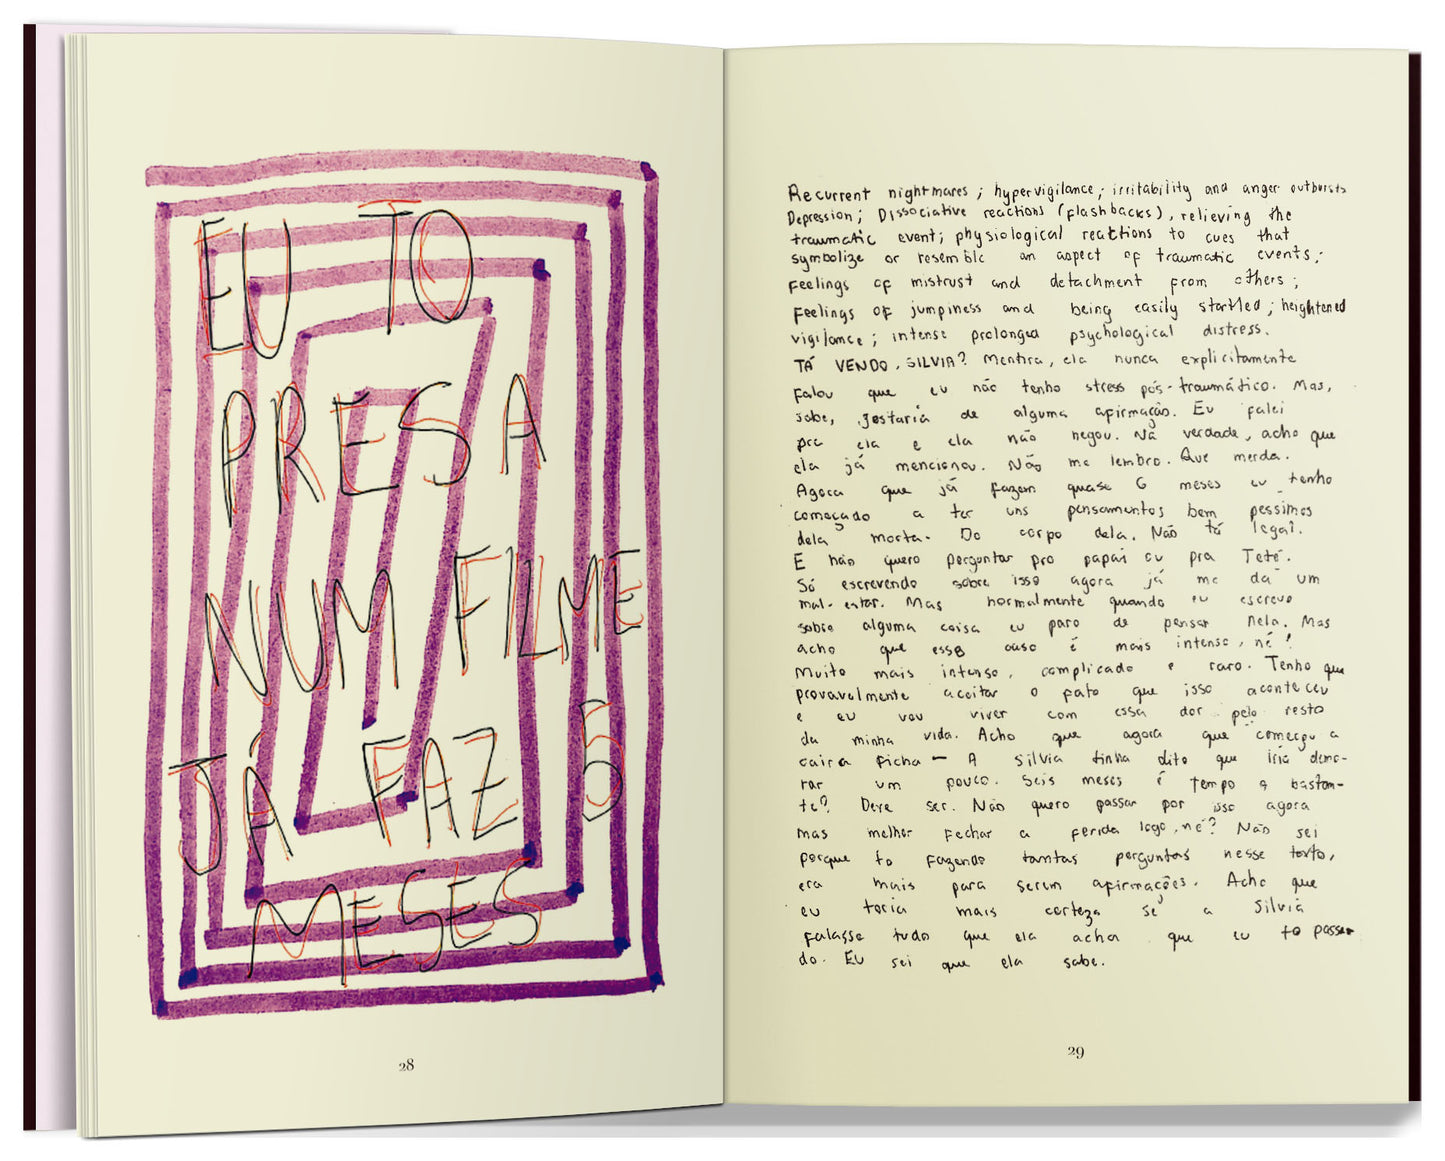 EU TO
PRESA
NUM FILME
JÁ FAZ 5
MESES
28
Recurrent nightmares; hypervigilance; irritability and anger outbursts
Depression; Dissociative reactions (flashbacks), relieving the
traumatic event; physiological reactions to cues that
symbolize or resemble an aspect of traumatic events;
feelings of mistrust and detachment from others;
feelings of jumpiness and being easily startled; heightened
vigilance; intense prolongued psychological distress.
TÁ VENDO, SILVIA? Mentira, ela nunca explicitamente
falou que eu não tenho stress pós-traumático. Mas,
sabe, gostaria de alguma afirmação. Eu falei
pra ela e ela não negou. Na verdade, acho que
ela já mencionou. Não me lembro. Que merda.
Agora que já fazem quase 6 meses eu tenho
começado a ter uns pensamentos bem pessimos
dela morta. Do corpo dela. Não tá legal.
E não quero perguntar pro papai ou pra Teté.
Só escrevendo sobre isso agora já me dá um
mal-estar. Mas normalmente quando eu escrevo
sobre alguma coisa eu paro de pensar nela. Mas
acho que esse caso é mais intenso, né?
Muito mais intenso, complicado e raro. Tenho que
provavelmente aceitar o fato que isso aconteceu
e eu vou viver com essa dor pelo resto
da minha vida. Acho que agora que começou a
cair a ficha - A Silvia tinha dito que iria demo-
rar um pouco. Seis meses é tempo o bastan-
te? Deve ser. Não quero passar por isso agora
mas melhor fechar a ferida logo, né? Não sei
porque to fazendo tantas perguntas nesse texto,
era mais para serem afirmações. Acho que
eu teria mais certeza se a Silvia
falasse tudo que ela acha que eu to passan-
do. Eu sei que ela sabe.
29